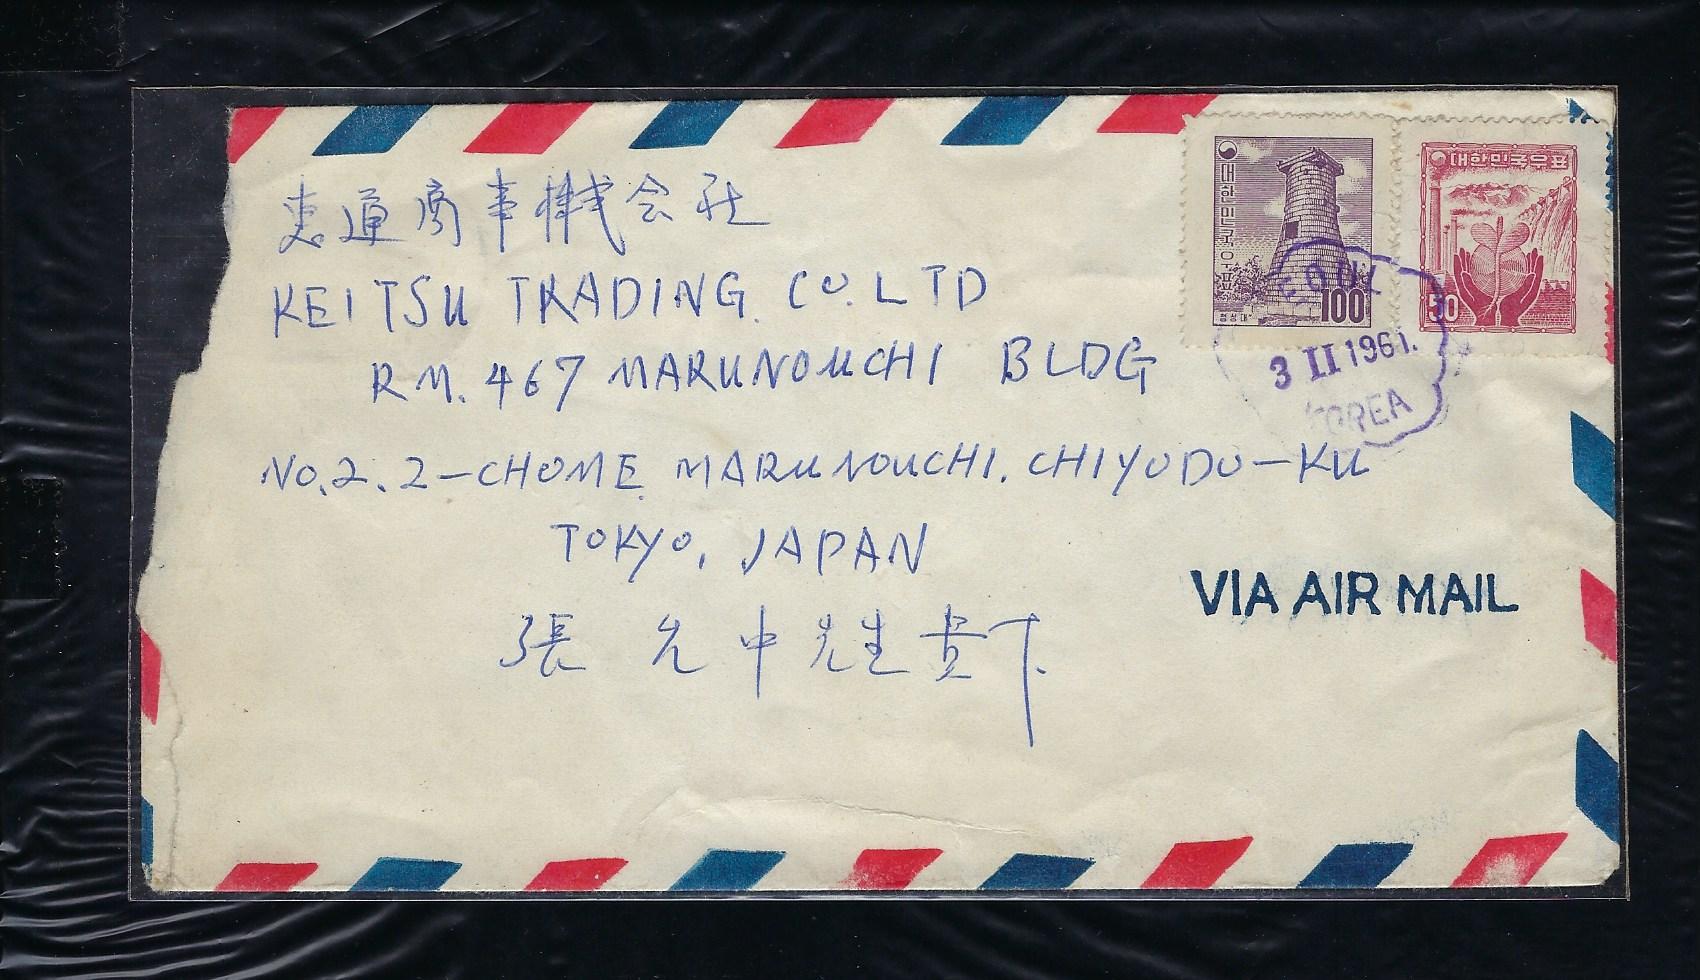 通商事株式会社
KEITSU TRADING. CO. LTD
RM. 467 MARUNOUCHI BLDG
NO. 2. 2-CHOME. MARUNOUCHI. CHIYODO-KU
TOKYO, JAPAN
張 允 中 先生 貴下
VIA AIR MAIL
대한민국우표
첨성대
100
대한민국우표
50
SEOUL
3 II 1961.
KOREA